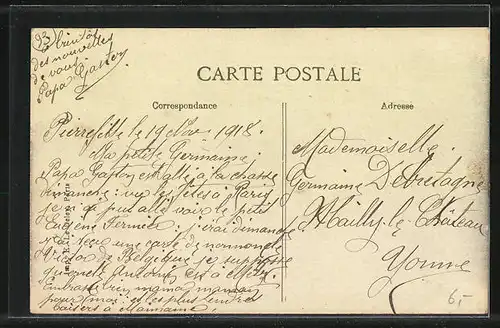 93
à bientôt
des nouvelles
de vous
Papa Gaston
CARTE POSTALE
Correspondance
Adresse
Pierrefitte le 19 Nov 1918.
Ma petite Germaine;
Papa Gaston est allé à la chasse
dimanche; vu les fêtes à Paris
je n'ai pu aller voir le petit
Eugène; j'irai dimanche
j'ai reçu une carte de
de Belgique je suppose
est à
Embrasse bien maman
pour moi; et les plus tendres
baisers à
Mademoiselle
Germaine Debretagne
Mailly-le-Château
Yonne
6,-